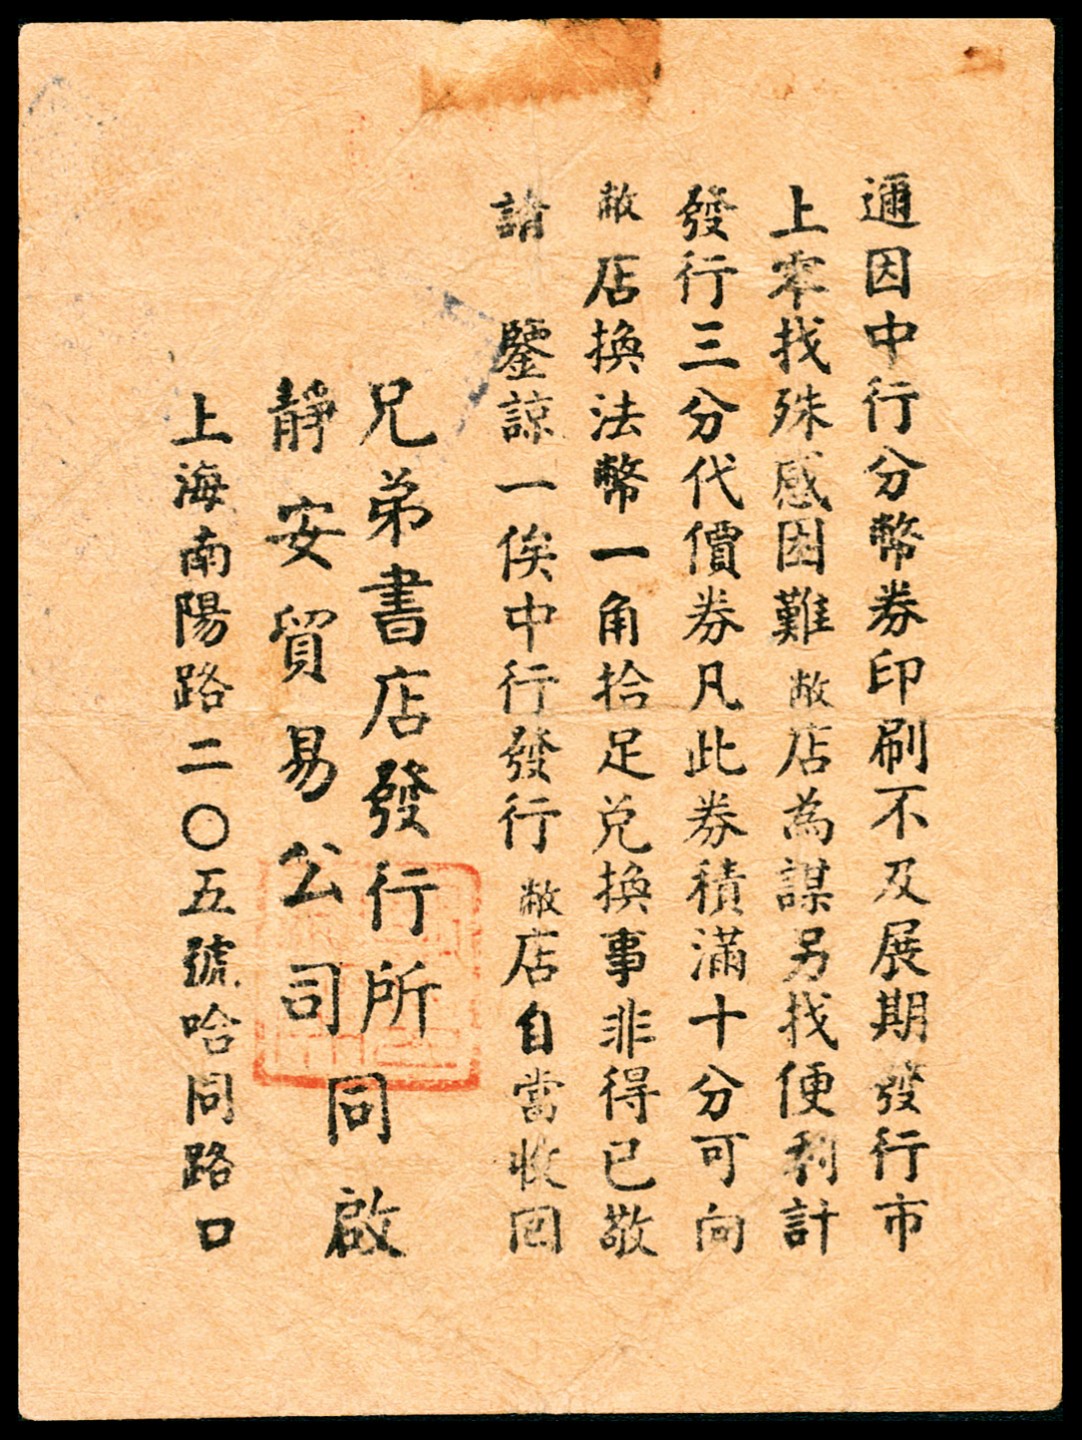 邇因中行分幣券印刷不及展期發行市
上零找殊感困難敝店為謀另找便利計
發行三分代價券凡此券積滿十分可向
敝店換法幣一角拾足兌換事非得已敬
請 鑒諒一俟中行發行敝店自當收回
兄弟書店發行所
靜安貿易公司
同啟
上海南陽路二〇五號哈同路口